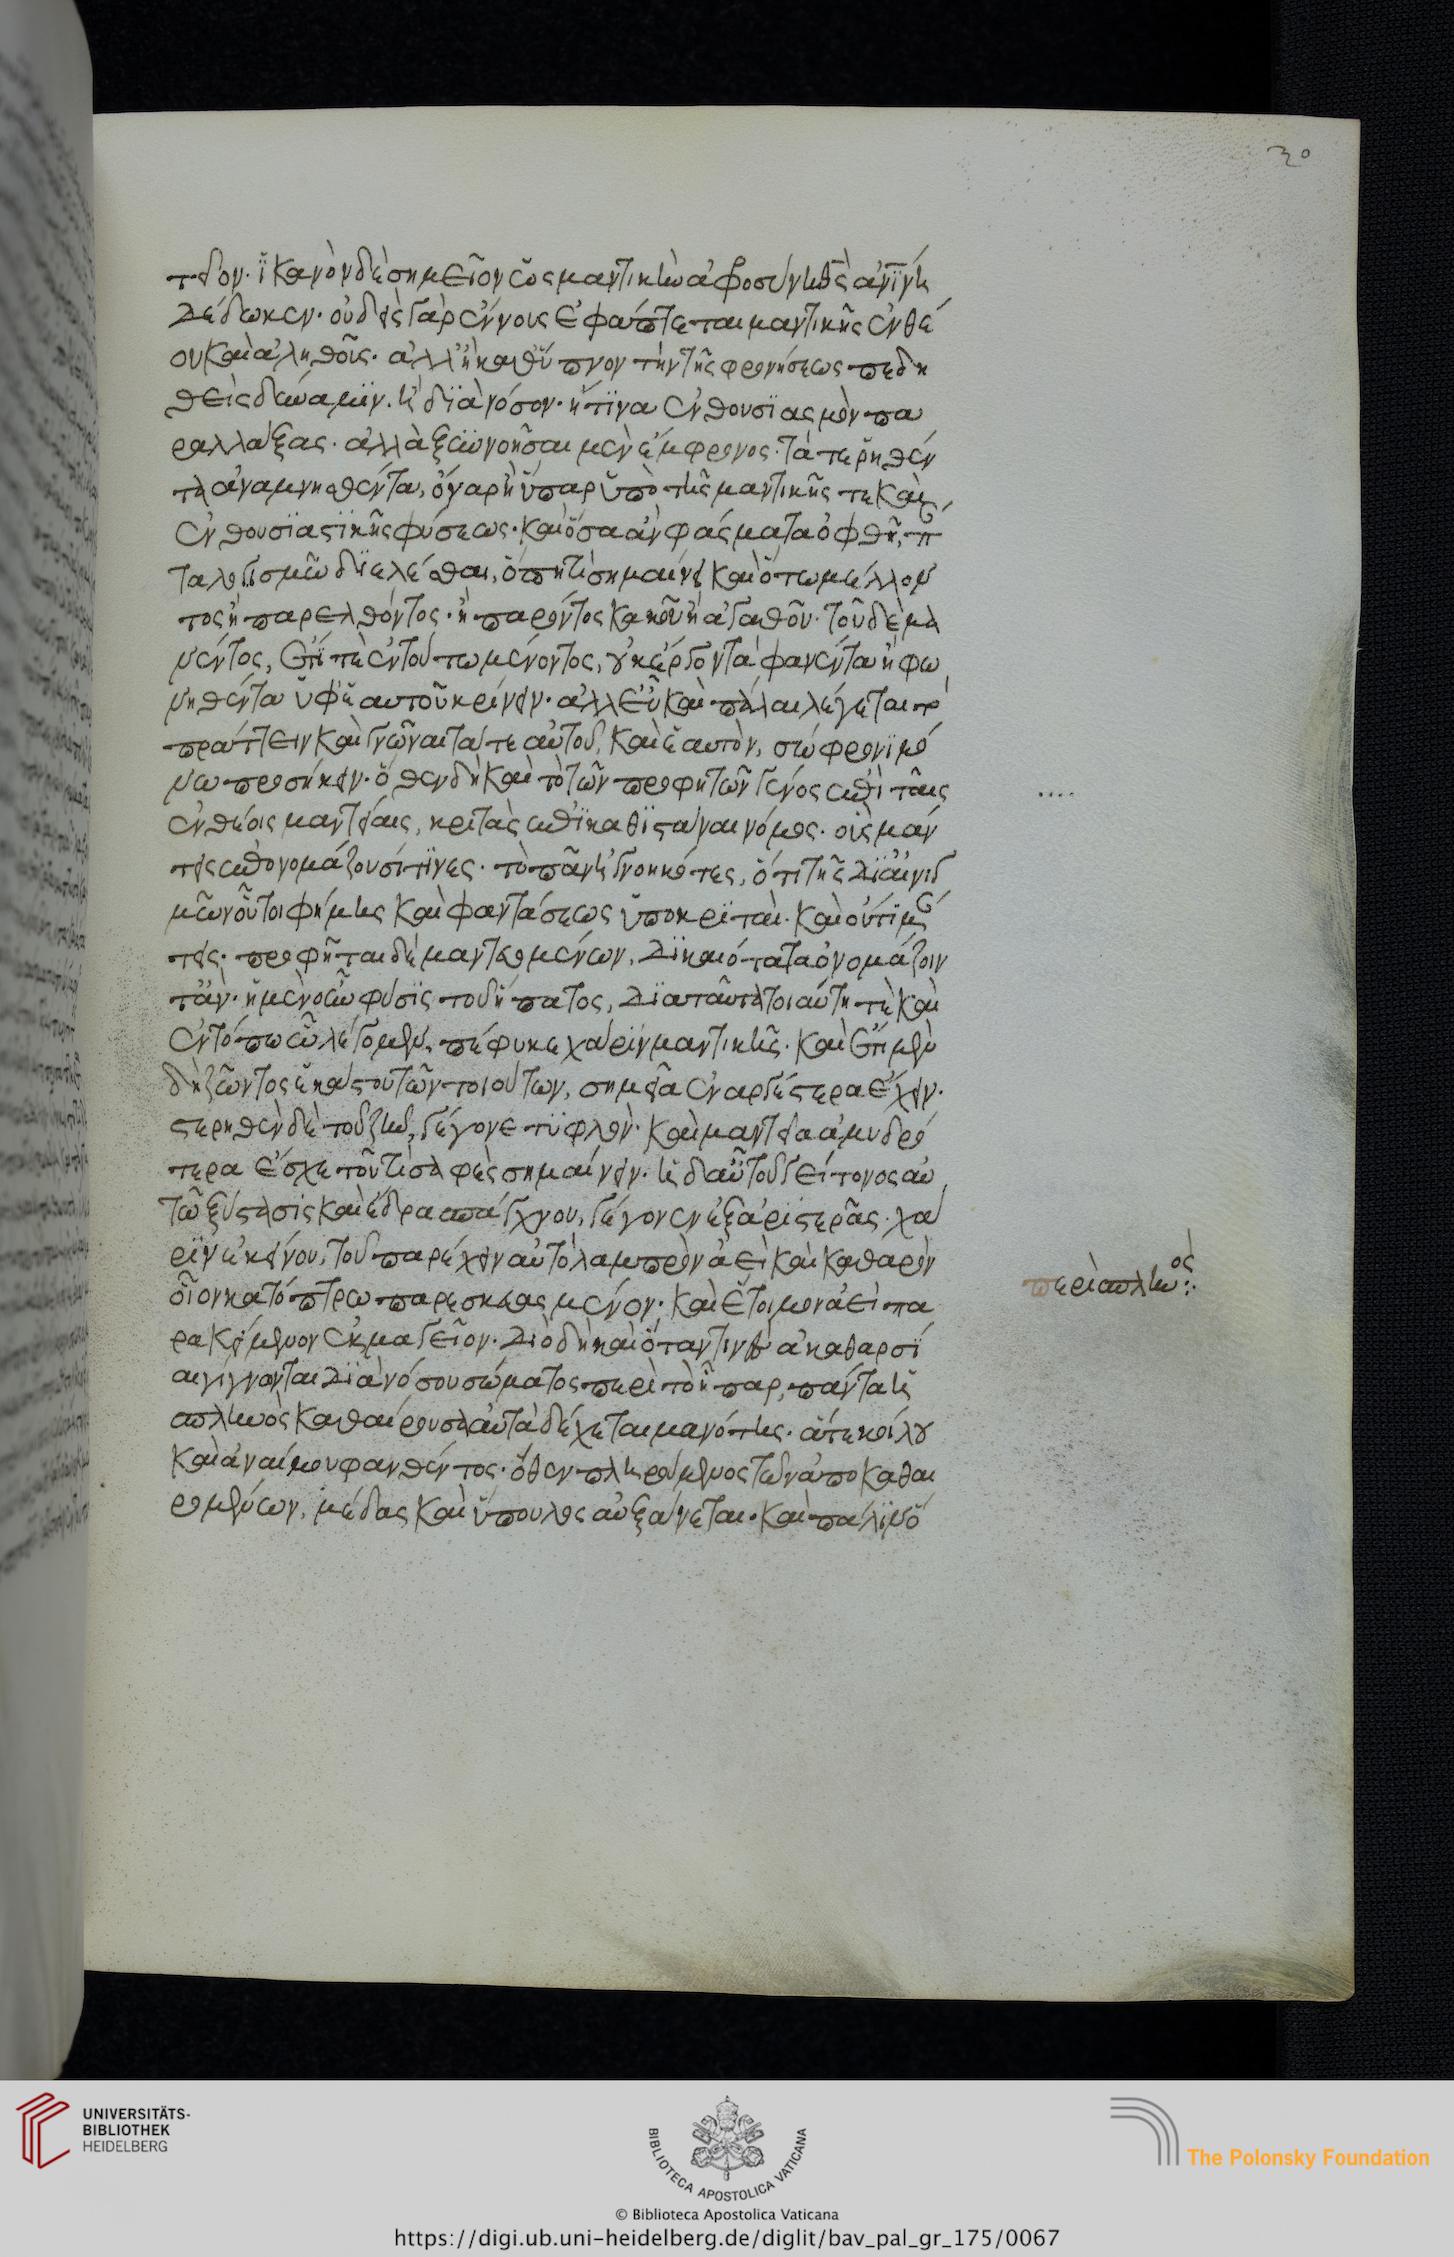 τεῖον· ἱκανὸν δὲ σημεῖον ὡς μαντικὴν ἀφροσύνη θς ἀνίνη
δέδωκεν· οὐδεὶς γὰρ ἔννους ἐφάπτεται μαντικῆς ἐνθέ
ου καὶ ἀληθοῦς· ἀλλ' ἢ καθ' ὕπνον τὴν τῆς φρονήσεως πεδη
θεὶς δύναμιν· ἢ διὰ νόσον· ἤ τινα ἐνθουσιασμὸν πα
ραλλάξας· ἀλλὰ ξυννοῆσαι μὲν ἔμφρονος· τά τε ῥηθέν
τα ἀναμνησθέντα, ὄναρ ἢ ὕπαρ ὑπὸ τῆς μαντικῆς τε καὶ
ἐνθουσιαστικῆς φύσεως· καὶ ὅσα ἂν φάσματα ὀφθῆ, πάν
τα λογισμῶ διελέσθαι, ὅπη τὶ σημαίνει καὶ ὅτω μέλλον
τος ἢ παρελθόντος· ἢ παρόντος κακοῦ ἢ ἀγαθοῦ· τοῦ δὲ μα
νέντος, ἔτι τὲ ἐν τούτω μένοντος, οὐκ ἔργον τὰ φανέντα ἢ φω
νηθέντα ὑφ' ἑαυτοῦ κρίνειν· ἀλλ' εὖ καὶ πάλαι λέγεται τὸ
πράττειν καὶ γνῶναι τά τε αὐτοῦ, καὶ ἑαυτὸν, σώφρονι μό
νω προσήκειν· ὅθεν δὴ καὶ τὸ τῶν προφητῶν γένος ἐπὶ ταῖς
ἐνθέοις μαντείαις, κριτὰς ἐπικαθιστάναι νόμος· οὓς μάν
τεις ἐπονομάζουσί τινες· τὸ πᾶν ἠγνοηκότες, ὅτι τῆς δι' αἰνιγ
μῶν οὗτοι φήμης καὶ φαντάσεως ὑποκριταὶ· καὶ οὔτι μάν
τεις· προφῆται δὲ μαντευομένων, δικαιότατα ὀνομάζοιν
τ' ἄν· ἡ μὲν οὖν φύσις τοῦ ἥπατος, διὰ ταῦτα τοιαύτη τὲ καὶ
ἐν τόπω ὧ λέγομεν, πέφυκε χάριν μαντικῆς· καὶ ἔτι μὲν
δὴ ζῶντος ἑκάστου τῶν τοιούτων, σημεῖα ἐναργέστερα ἔχειν·
στερηθὲν δὲ τοῦ ζῆν, γέγονε τυφλὸν· καὶ μαντεῖα ἀμυδρό
τερα ἔσχε τοῦ τὶ σαφὲς σημαίνειν· ἡ δ' αὖ τοῦ γείτονος αὐ
τῶ ξύστασις καὶ ἕδρα σπλάγχνου, γέγονεν ἐξ ἀριστερᾶς· χά
ριν ἐκείνου, τοῦ παρέχειν αὐτὸ λαμπρὸν ἀεὶ καὶ καθαρὸν
οἷον κατόπτρω παρεσκευασμένον· καὶ ἕτοιμον ἀεὶ πα
ρακείμενον ἐκμαγεῖον· διὸ δὴ καὶ ὅταν τινὲς ἀκαθαρσί
αι γίγνωνται διὰ νόσου σώματος περὶ τὸ ἧπαρ, πάντα ἡ
σπληνὸς καθαίρουσα αὐτὰ δέχεται μανότης· ἅτε κοίλου
καὶ ἀναίμου φανθέντος· ὅθεν πληρούμενος τῶν ἀποκαθαι
ρομένων, μέγας καὶ ὕπουλος αὐξάνεται· καὶ πάλιν ὅ
περὶ σπληνός
30
UNIVERSITÄTS-
BIBLIOTHEK
HEIDELBERG
BIBLIOTECA APOSTOLICA VATICANA
The Polonsky Foundation
© Biblioteca Apostolica Vaticana
https://digi.ub.uni-heidelberg.de/diglit/bav_pal_gr_175/0067